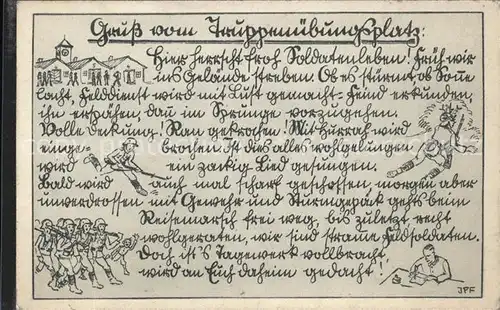 Gruß vom Truppenübungsplatz:
Hier herrscht froh. Soldatenleben! Früh wir
ins Gelände streben. Ob es stürmt, ob Sonne
lacht, Felddienst wird mit Lust gemacht - Feind erkunden,
ihn erspähen, dann im Sprunge vorzugehen.
Volle Deckung! Ran gekrochen! Mit Hurrah wird
einge- brochen. Ist dies alles wohlgelungen
wird ein zackig Lied gesungen.
Bald wird auch mal scharf geschossen, morgen aber
unverdrossen mit Gewehr und Sturmgepäck geht's beim
Reisemarsch frei weg, bis zuletzt recht
wohlgeraten, wir sind stramme Feldsoldaten.
Doch ist's Tagewerk vollbracht
wird an Euch daheim gedacht!
JPF